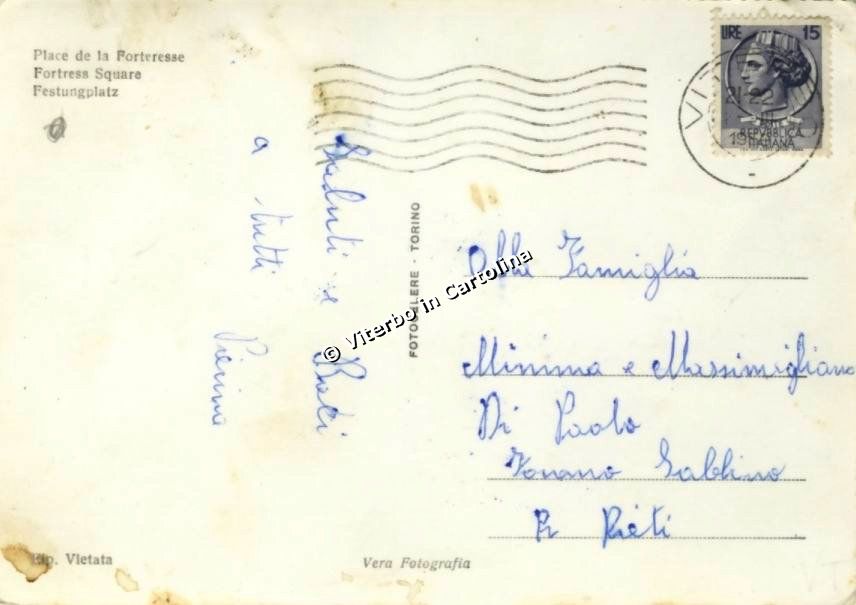 Place de la Forteresse
Fortress Square
Festungplatz
Saluti e Baci
a tutti
Pierina
FOTOCELERE - TORINO
© Viterbo in Cartolina
LIRE 15
REPVBBLICA
ITALIANA
21-22
Alla Famiglia
Minima e Massimigliano
Di Paolo
Fanano Sabbino
Rieti
Rip. Vietata
Vera Fotografia